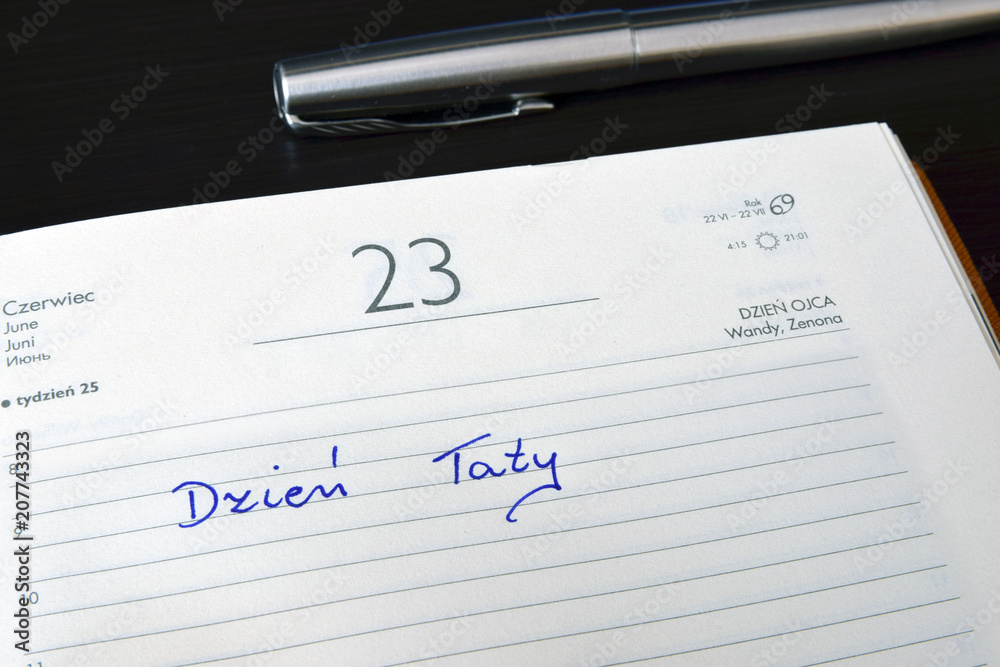 Rok
22 VI – 22 VII
4:15 21:01
23
Czerwiec
June
Juni
Июнь
DZIEŃ OJCA
Wandy, Zenona
• tydzień 25
8
Dzień Taty
9
10
11
Adobe Stock | #207743323